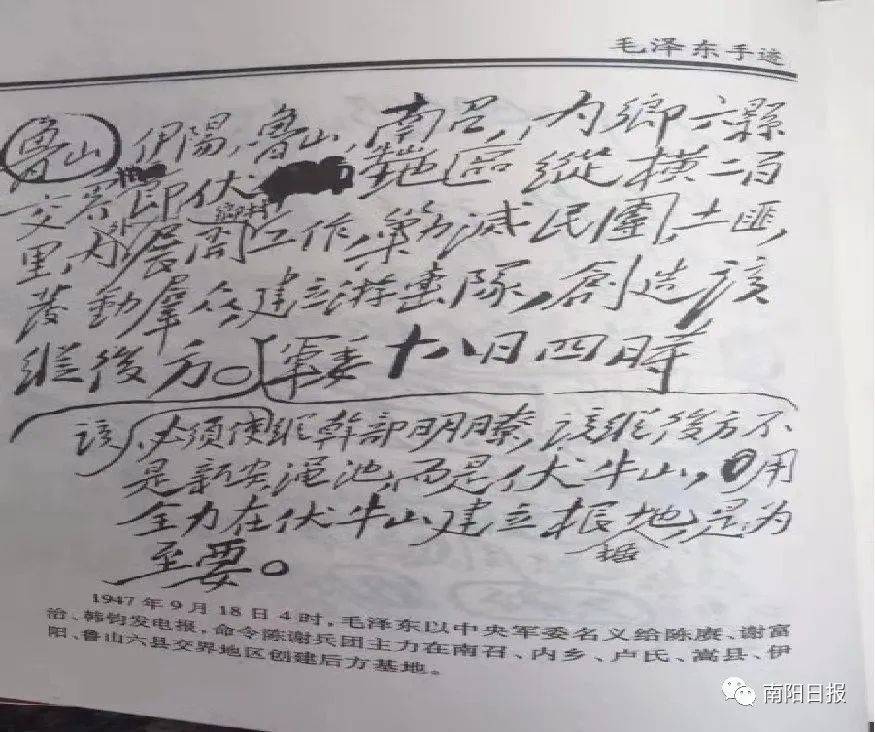 毛泽东手迹
魯山 伊陽,魯山,南召,内鄉六縣
交界即伏 地區縱橫二百
里,力展開鄉村工作,剿滅民團,土匪,
發動羣众,建立游击隊,創造該
縱後方。軍委十八日四時
該必須使縱幹部明瞭,該縱後方不
是新安渑池,而是伏牛山,用
全力在伏牛山建立根据地,是为
至要。
1947年9月18日4时,毛泽东以中央军委名义给陈赓、谢富
治、韩钧发电报,命令陈谢兵团主力在南召、内乡、卢氏、嵩县、伊
阳、鲁山六县交界地区创建后方基地。
南阳日报